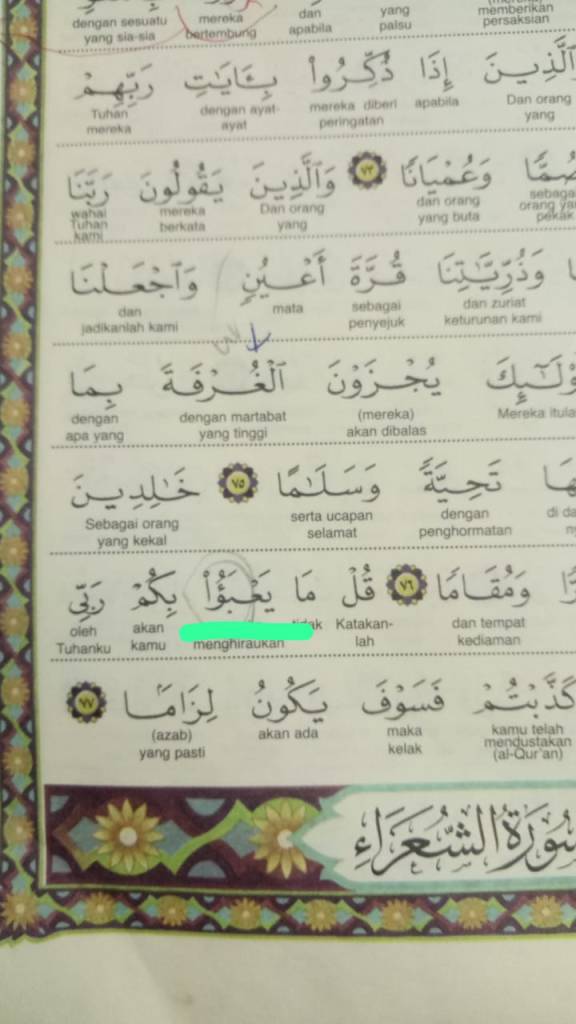 dengan sesuatu mereka dan yang memberikan
yang sia-sia bertembung apabila palsu persaksian
ٱلَّذِينَ إِذَا ذُكِّرُوا۟ بِـَٔايَـٰتِ رَبِّهِمْ
Tuhan dengan ayat- mereka diberi apabila Dan orang
mereka ayat peringatan yang
صُمًّا وَعُمْيَانًا ٧٣ وَٱلَّذِينَ يَقُولُونَ رَبَّنَا
wahai mereka Dan orang dan orang
Tuhan berkata yang yang buta pekak
kami
وَذُرِّيَّـٰتِنَا قُرَّةَ أَعْيُنٍ وَٱجْعَلْنَا
dan mata sebagai dan zuriat
jadikanlah kami penyejuk keturunan kami
يُجْزَوْنَ ٱلْغُرْفَةَ بِمَا
dengan dengan martabat (mereka) Mereka
apa yang yang tinggi akan dibalas
تَحِيَّةً وَسَلَـٰمًا ٧٥ خَـٰلِدِينَ
Sebagai orang serta ucapan dengan di
yang kekal selamat penghormatan
وَمُقَامًا ٧٦ قُلْ مَا يَعْبَؤُا۟ بِكُمْ رَبِّى
oleh akan Katakan- dan tempat
Tuhanku kamu menghiraukan lah kediaman
كَذَّبْتُمْ فَسَوْفَ يَكُونُ لِزَامًۢا ٧٧
(azab) akan ada maka kamu telah
yang pasti kelak mendustakan
(al-Qur'an)
سُورَةُ الشُّعَرَاءِ